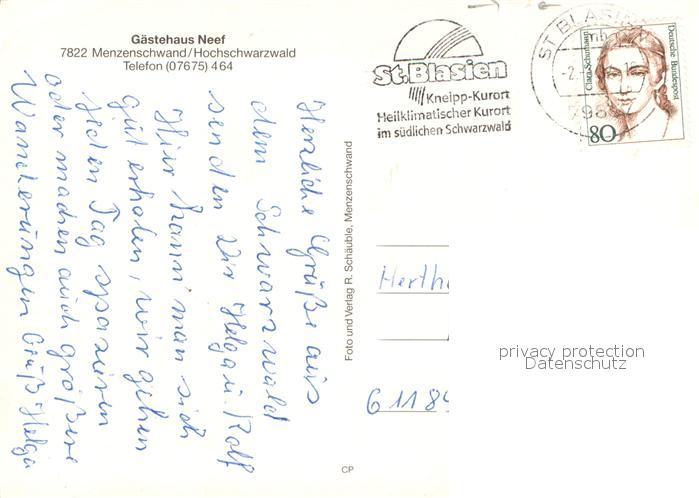 Gästehaus Neef
7822 Menzenschwand/Hochschwarzwald
Telefon (07675) 464
Herzliche Grüße aus
dem Schwarzwald
senden Dir Helga u. Rolf
Hier kann man sich
gut erholen, wir gehen
jeden Tag spazieren
oder machen auch größere
Wanderungen Gruß Helga
Foto und Verlag R. Schäuble, Menzenschwand
CP
St. Blasien
Kneipp-Kurort
Heilklimatischer Kurort
im südlichen Schwarzwald
ST BLASIEN
mb
-2.
7983
Clara Schumann
Deutsche Bundespost
80
Herth
61184
privacy protection
Datenschutz